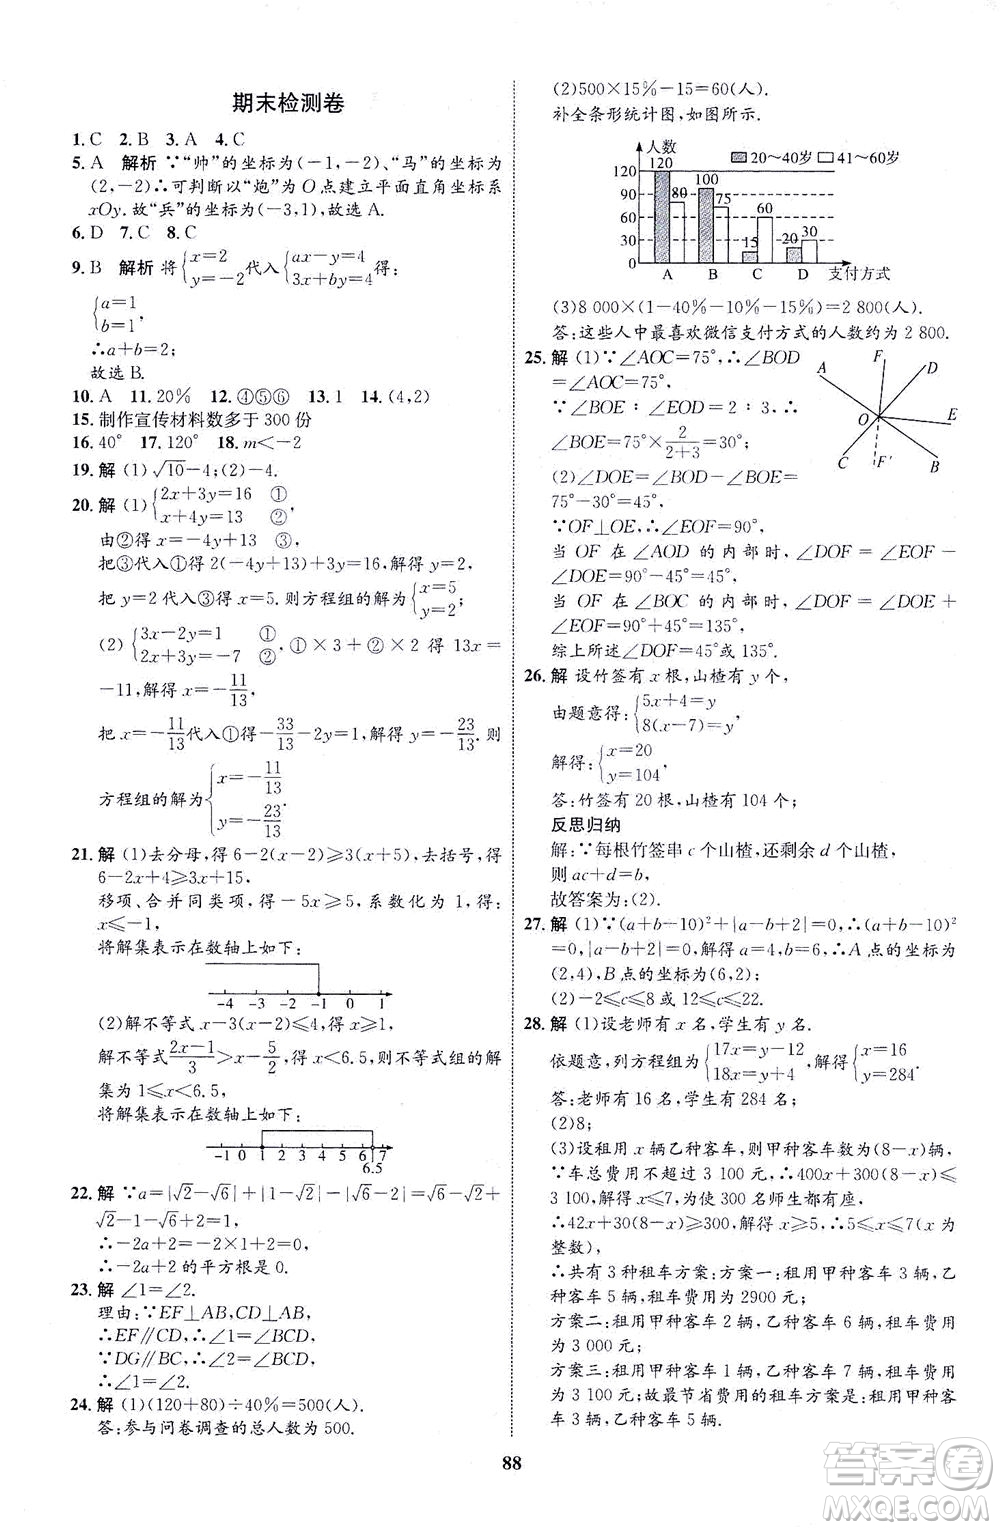 期末检测卷
1. C  2. B  3. A  4. C
5. A  解析  ∵“帅”的坐标为(-1,-2)、“马”的坐标为
(2,-2)∴可判断以“炮”为 O 点建立平面直角坐标系
xOy. 故“兵”的坐标为(-3,1), 故选 A.
6. D  7. C  8. C
9. B  解析  将{x=2, y=-2 代入{ax-y=4, 3x+by=4 得:
{a=1, b=1,
∴a+b=2;
故选 B.
10. A  11. 20%  12. ④⑤⑥  13. 1  14. (4,2)
15. 制作宣传材料数多于 300 份
16. 40°  17. 120°  18. m<-2
19. 解 (1)√10-4;(2)-4.
20. 解 (1){2x+3y=16 ①, x+4y=13 ②,
由②得 x=-4y+13 ③
把③代入①得 2(-4y+13)+3y=16,解得 y=2
把 y=2 代入③得 x=5. 则方程组的解为{x=5, y=2;
(2){3x-2y=1 ①, 2x+3y=-7 ②, ①×3+②×2 得 13x=
-11,解得 x=-11/13
把 x=-11/13代入①得-33/13-2y=1,解得 y=-23/13. 则
方程组的解为{x=-11/13, y=-23/13.
21. 解 (1)去分母,得 6-2(x-2)≥3(x+5),去括号,得
6-2x+4≥3x+15,
移项、合并同类项,得-5x≥5,系数化为 1,得:
x≤-1,
将解集表示在数轴上如下:
-4 -3 -2 -1 0 1
(2)解不等式 x-3(x-2)≤4,得:x≥1,
解不等式(2x-1)/3>x-5/2,得:x<6.5,则不等式组的解
集为 1≤x<6.5,
将解集表示在数轴上如下:
-1 0 1 2 3 4 5 6 7
6.5
22. 解 ∵a=|√2-√6|+|1-√2|-|√6-2|=√6-√2+
√2-1-√6+2=1,
∴-2a+2=-2×1+2=0,
∴-2a+2 的平方根是 0.
23. 解 ∠1=∠2.
理由:∵EF⊥AB,CD⊥AB,
∴EF∥CD,∴∠1=∠BCD,
∵DG∥BC,∴∠2=∠BCD,
∴∠1=∠2.
24. 解 (1)(120+80)÷40%=500(人).
答:参与问卷调查的总人数为 500.
(2)500×15%-15=60(人).
补全条形统计图,如图所示.
人数
20~40岁 41~60岁
120 90 60 30 0
120 80 100 75 15 60 20 30
A B C D 支付方式
(3)8 000×(1-40%-10%-15%)=2 800(人).
答:这些人中最喜欢微信支付方式的人数约为 2 800.
25. 解 (1)∵∠AOC=75°,∴∠BOD
=∠AOC=75°,
∵∠BOE∶∠EOD=2∶3,∴
∠BOE=75°×2/(2+3)=30°;
(2)∠DOE=∠BOD-∠BOE=
75°-30°=45°,
A F D O E C F′ B
∵OF⊥OE,∴∠EOF=90°,
当 OF 在∠AOD 的内部时,∠DOF=∠EOF-
∠DOE=90°-45°=45°,
当 OF 在∠BOC 的内部时,∠DOF=∠EOF+
∠DOE=90°+45°=135°,
综上所述∠DOF=45°或 135°.
26. 解 设竹签有 x 根,山楂有 y 个,
由题意得:{5x+4=y, 8(x-7)=y,
解得:{x=20, y=104,
答:竹签有 20 根,山楂有 104 个;
反思归纳
解:∵每根竹签串 c 个山楂,还剩余 d 个山楂,
则 ac+d=b,
故答案为:(2).
27. 解 (1)∵(a+b-10)²+|a-b+2|,∴(a+b-10)²
=0,|a-b+2|=0,解得 a=4,b=6,∴A 点的坐标为
(2,4),B 点的坐标为(6,2);
(2)-2≤c≤8 或 12≤c≤22.
28. 解 (1)设老师有 x 名,学生有 y 名.
依题意,列方程组为{17x=y-12, 18x=y+4,解得{x=16, y=284.
答:老师有 16 名,学生有 284 名;
(2)8;
(3)设租用 x 辆乙种客车,则甲种客车数为(8-x)辆,
∵车总费用不超过 3 100 元,∴400x+300(8-x)≤
3 100,解得 x≤7,为使 300 名师生都有座,
∴42x+30(8-x)≥300,解得 x≥5,∴5≤x≤7(x 为
整数),
∴共有 3 种租车方案:方案一:租用甲种客车 3 辆,乙
种客车 5 辆,租车费用为 2900 元;
方案二:租用甲种客车 2 辆,乙种客车 6 辆,租车费用
为 3 000 元;
方案三:租用甲种客车 1 辆,乙种客车 7 辆,租车费用
为 3 100 元;故最节省费用的租车方案是:租用甲种客
车 3 辆,乙种客车 5 辆.
88
答案圈
MXQE.COM